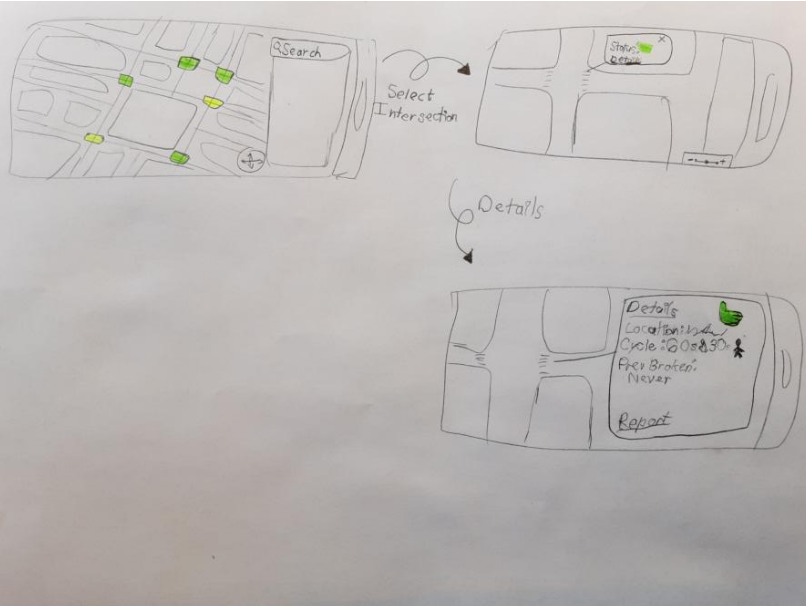 Search
Select
Intersection
Status:
Details
- +
Details
Details
Location:
Cycle: 60s 30s
Prev Broken:
Never
Report